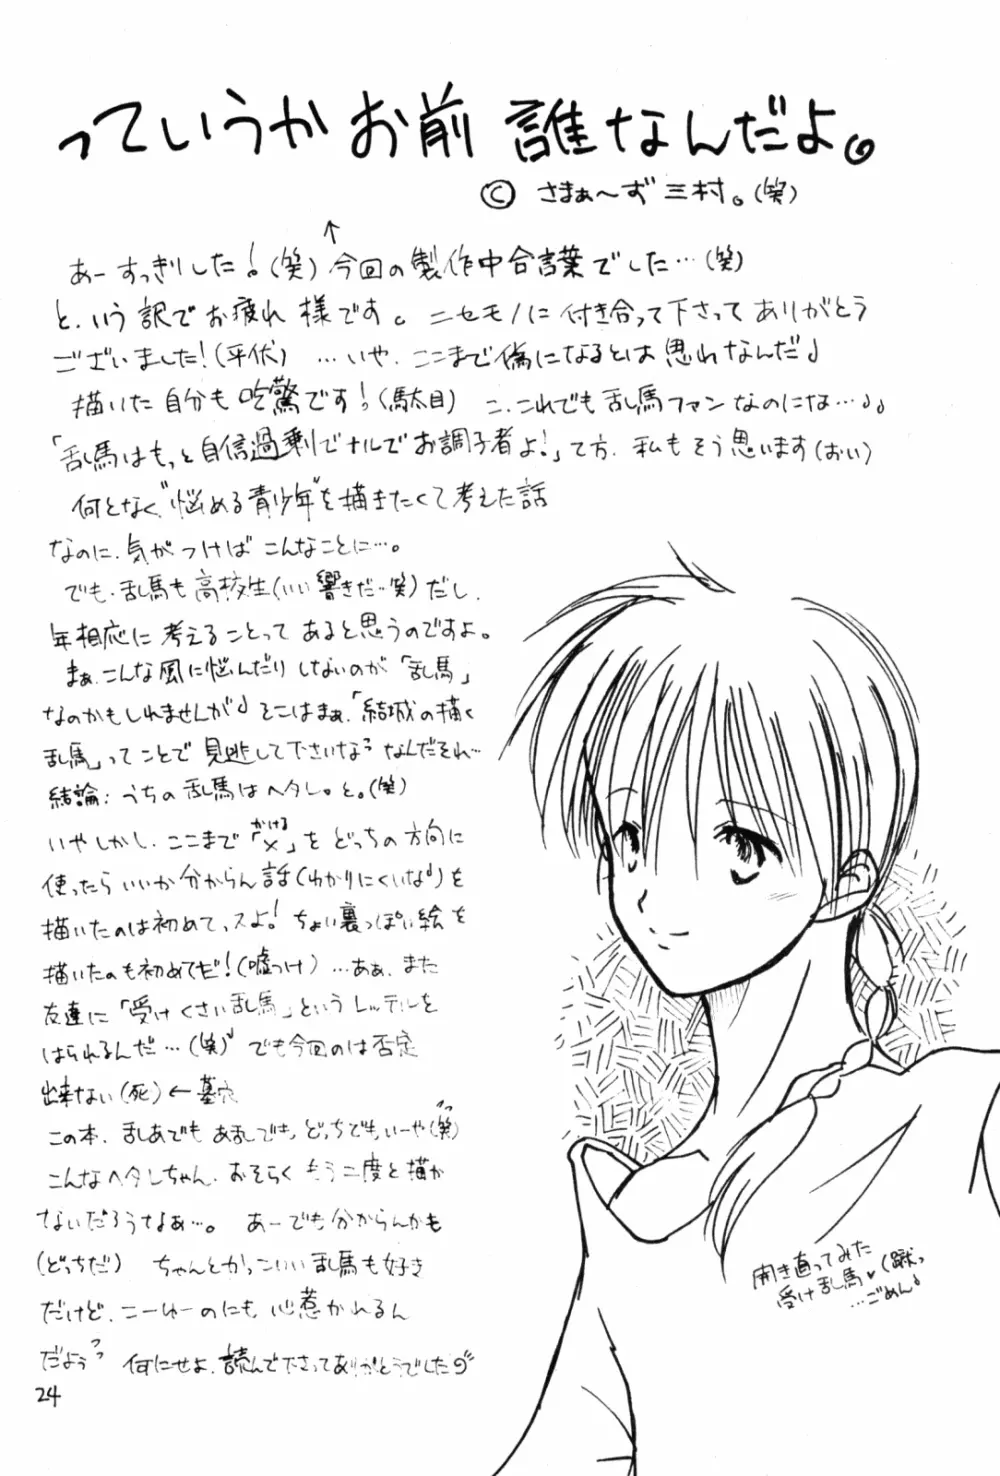 っていうかお前 誰なんだよ。
© さまぁ〜ず 三村。(笑)
↑
あーすっきりした!(笑) 今回の製作中合言葉でした…(笑)
と、いう訳でお疲れ様です。ニセモノに付き合って下さってありがとう
ございました!(平伏) …いや、ここまで偽になるとは思れなんだ♩
描いた自分も吃驚です!(駄目) こ、これでも乱馬ファンなのにな…♩♩
「乱馬はもっと自信過剰でナルでお調子者よ!」て方、私もそう思います(おい)
何となく"悩める青少年"を描きたくて考えた話
なのに、気がつけばこんなことに…。
でも、乱馬も高校生(いい響きだ…笑)だし、
年相応に考えることってあると思うのですよ。
まぁ、こんな風に悩んだりしないのが「乱馬」
なのかもしれませんが♩そこはまぁ、「結城の描く
乱馬」ってことで見逃して下さいなっ なんだそれ…
結論:うちの乱馬はヘタレ。と。(笑)
いやしかし、ここまで「×」をどっちの方向に
かける
使ったらいいか分からん話(わかりにくいな♩)を
描いたのは初めてっスよ!ちょい裏っぽい絵を
描いたのも初めてだ!(嘘つけ) …ああ、また
友達に「受けくさい乱馬」というレッテルを
はられるんだ…(笑) でも今回のは否定
出来ない(死) ← 墓穴
この本、乱あでもあ乱でも、どっちでもいーや(笑)
こんなヘタレちゃん、おそらくもう二度と描か
ないだろうなぁ…。 あーでも分からんかも
(どっちだ) ちゃんとかっこいい乱馬も好き
だけど、こーゆーのにも心惹かれるん
だよぅっ 何にせよ、読んで下さってありがとうでした
開き直ってみた
受け乱馬♥(蹴っ
…ごめん♩
24